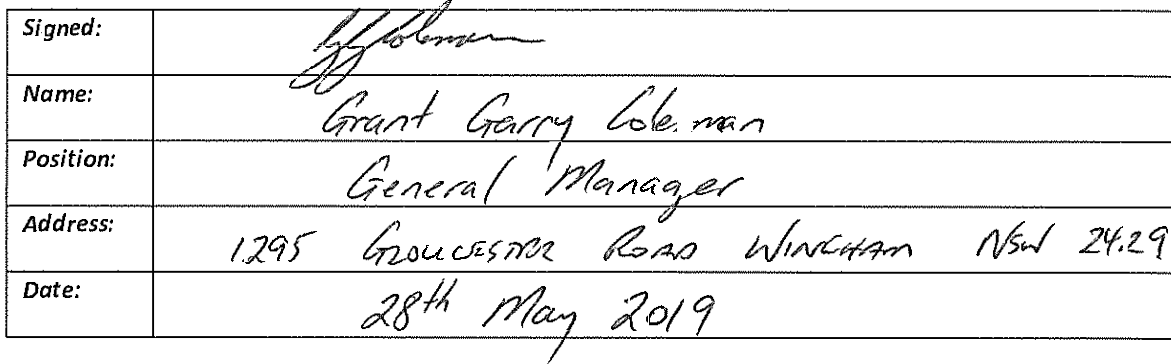 Signed:
Name: Grant Garry Coleman
Position: General Manager
Address: 1295 GLOUCESTER ROAD WINGHAM NSW 2429
Date: 28th May 2019